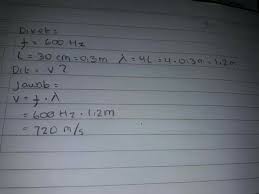 Diket =
f = 600 Hz
L = 30 cm = 0.3m λ = 4L = 4.0.3m = 1.2m
Dit = v ?
Jawab =
v = f . λ
= 600 Hz . 1.2m
= 720 m/s